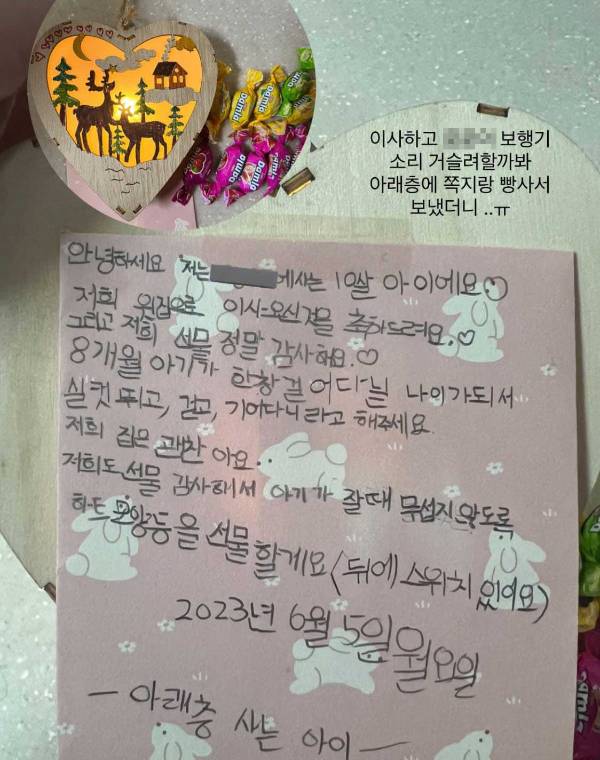 이사하고 보행기
소리 거슬려할까봐
아래층에 쪽지랑 빵사서
보냈더니 ..ㅠ
안녕하세요 저는 에사는 10살 아이에요♡
저희 윗집으로 이사오신걸 축하드려요.♡
그리고 저희 선물 정말 감사해요.♡
8개월 아기가 한창 걸어다닐 나이가되서
실컷 뛰고, 걷고, 기어다니라고 해주세요.
저희 집은 괜찬아요.
저희도 선물 감사해서 아기가 잘때 무섭지않도록
하트모양등을 선물할게요(뒤에 스위치 있어요)
2023년 6월 5일 월요일
— 아래층 사는 아이 —
Damla
Damla
Damla
Damla
Damla